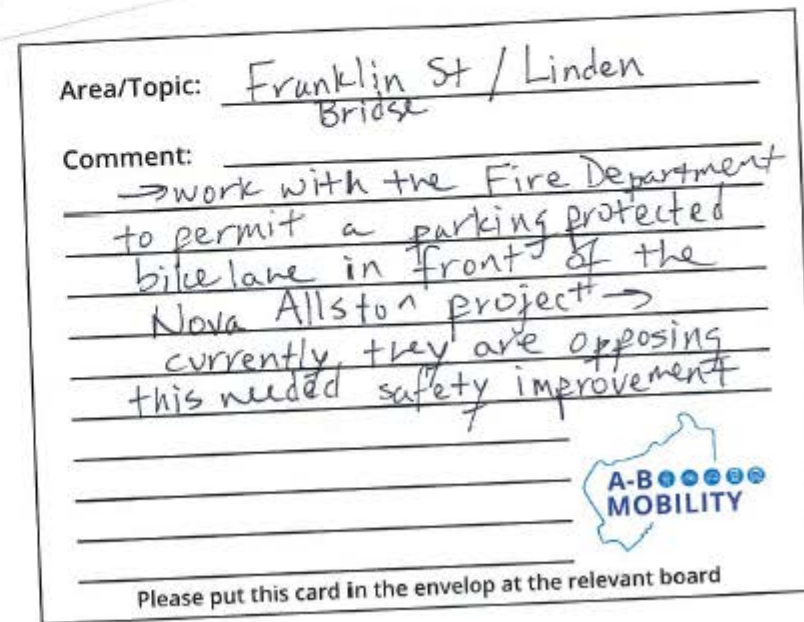 Area/Topic: Franklin St / Linden
Bridge
Comment:
→work with the Fire Department
to permit a parking protected
bike lane in front of the
Nova Allston project →
currently, they are opposing
this needed safety improvement
A-B
MOBILITY
Please put this card in the envelop at the relevant board